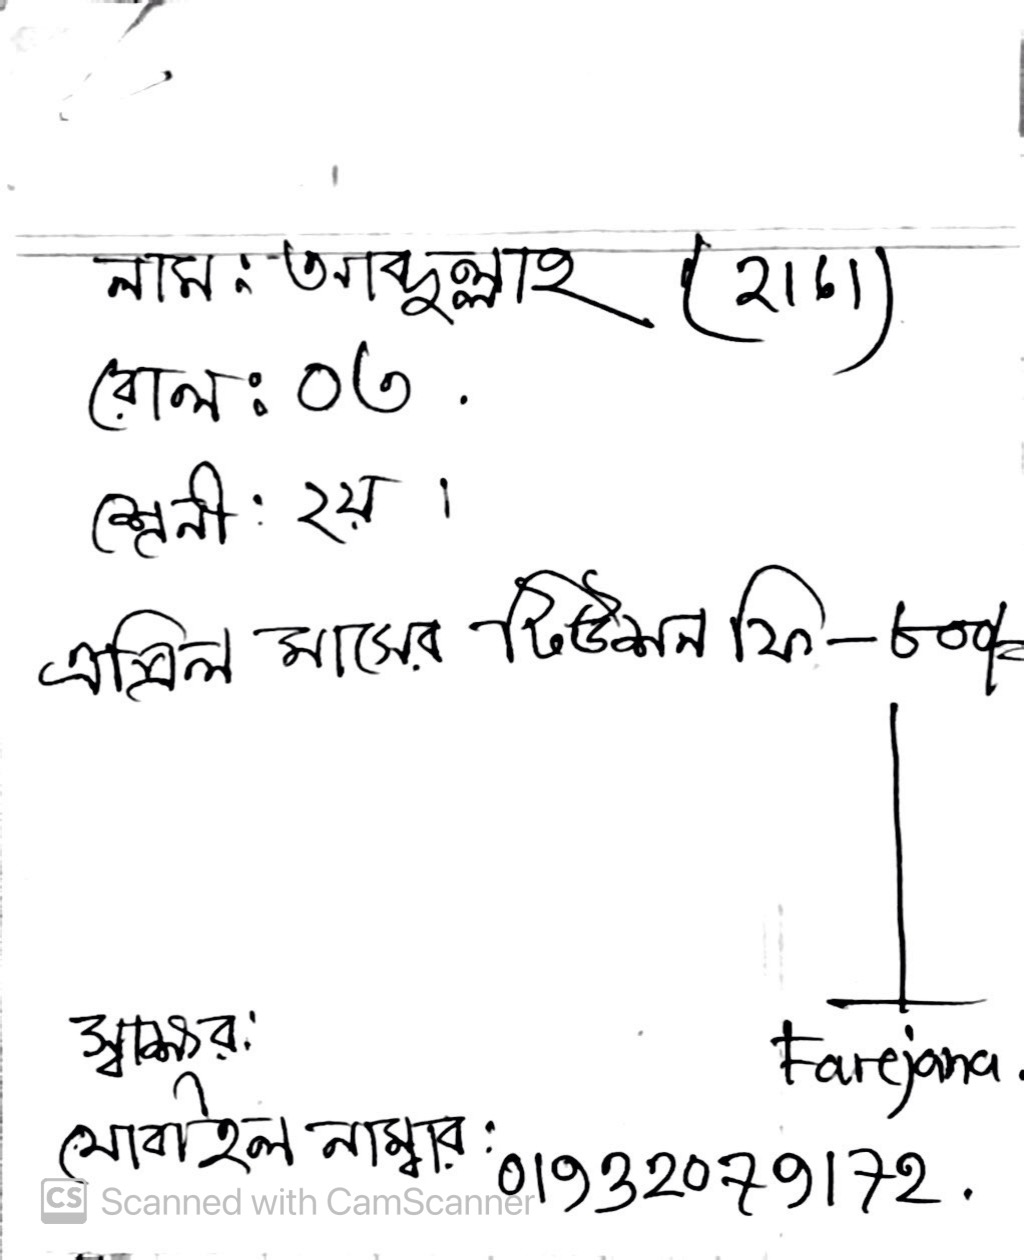 নাম: আব্দুল্লাহ
রোল: ০৩.
শ্রেনী: ২য়।
এপ্রিল মাসের টিউশন ফি - ৮০০/=
স্বাক্ষর:
Farejana.
মোবাইল নাম্বার: 01932079172.
CS Scanned with CamScanner